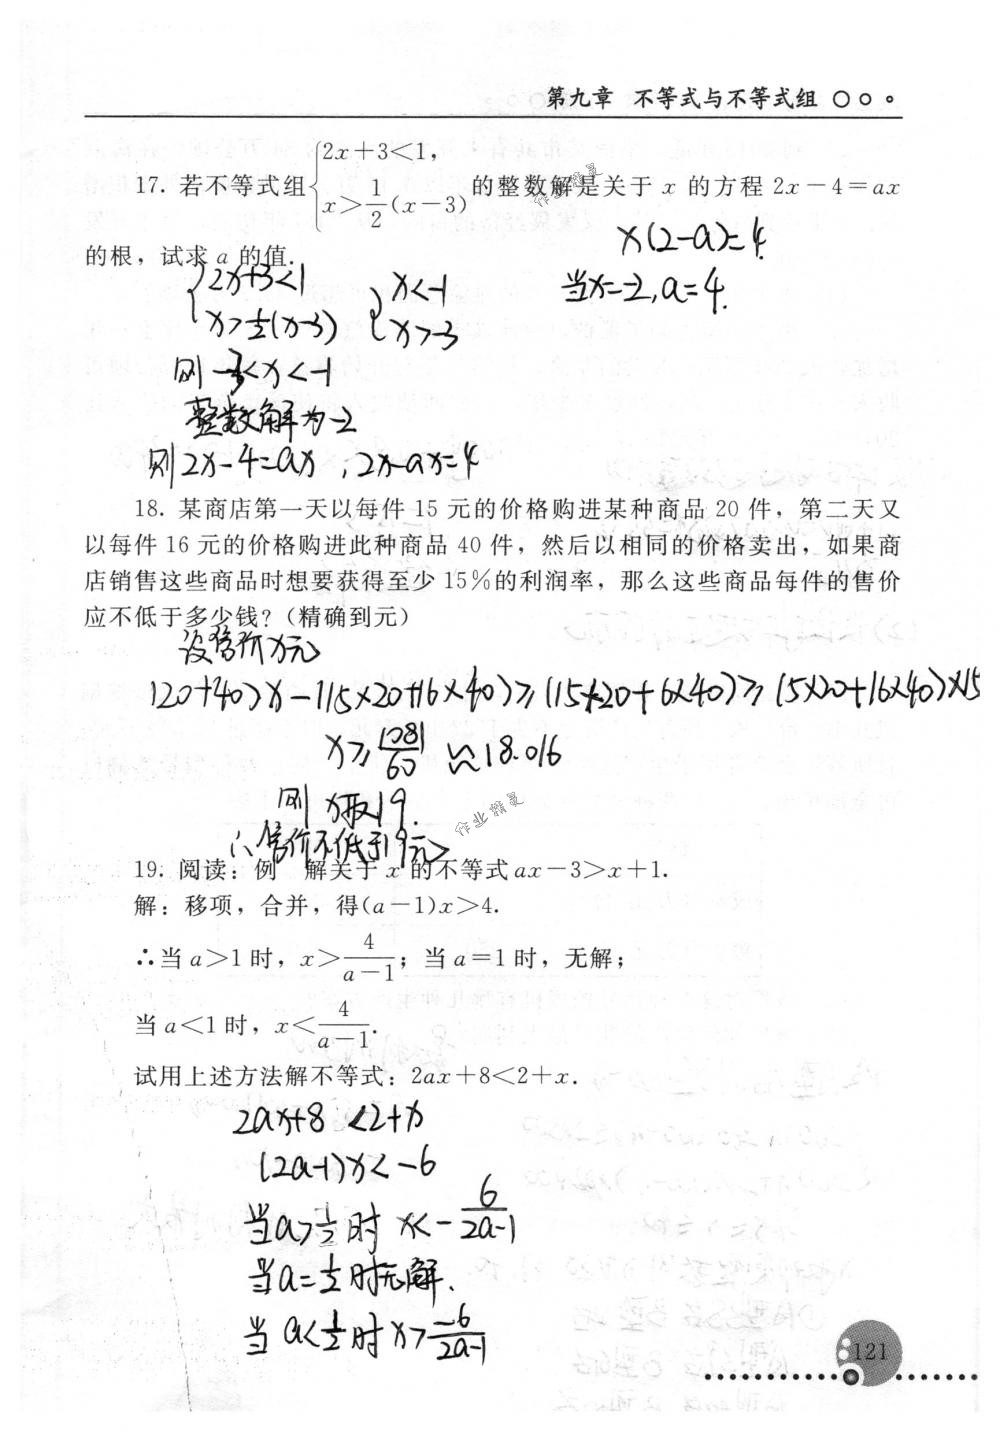 第九章 不等式与不等式组
17. 若不等式组{2x+3<1, x>1/2(x-3) 的整数解是关于 x 的方程 2x-4=ax
的根，试求 a 的值.
x(2-a)=4.
当x=-2,a=4.
{2x+3<1 x>1/2(x-3) {x<-1 x>-3
则 -3<x<-1
整数解为-2
则2x-4=ax，2x-ax=4
18. 某商店第一天以每件 15 元的价格购进某种商品 20 件，第二天又
以每件 16 元的价格购进此种商品 40 件，然后以相同的价格卖出，如果商
店销售这些商品时想要获得至少 15%的利润率，那么这些商品每件的售价
应不低于多少钱?（精确到元）
设售价x元
(20+40)x-(15×20+16×40)≥(15×20+6×40)≥(5×20+16×40)×15
x≥1081/60≈18.016
则x取19.
∴售价不低于19元
作业精灵
19. 阅读：例 解关于 x 的不等式 ax-3>x+1.
解：移项，合并，得(a-1)x>4.
∴当 a>1 时，x>4/(a-1)；当 a=1 时，无解；
当 a<1 时，x<4/(a-1).
试用上述方法解不等式：2ax+8<2+x.
2ax+8<2+x
(2a-1)x<-6
当a>1/2时 x<-6/(2a-1)
当a=1/2时无解.
当a<1/2时x>-6/(2a-1)
121